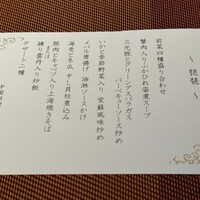 ～ 琵琶 ～
前菜四種盛り合わせ
蟹肉入りふかひれ姿煮スープ
三元豚とグリーンアスパラガス
バーベキューソース炒め
いかと季節野菜入り 紫蘇風味炒め
メバル唐揚げ 油淋ソースかけ
海老と冬瓜 干し貝柱煮込み
豚肉とキャベツ入り上海焼きそば
または
練り雲丹入り炒飯
デザート二種